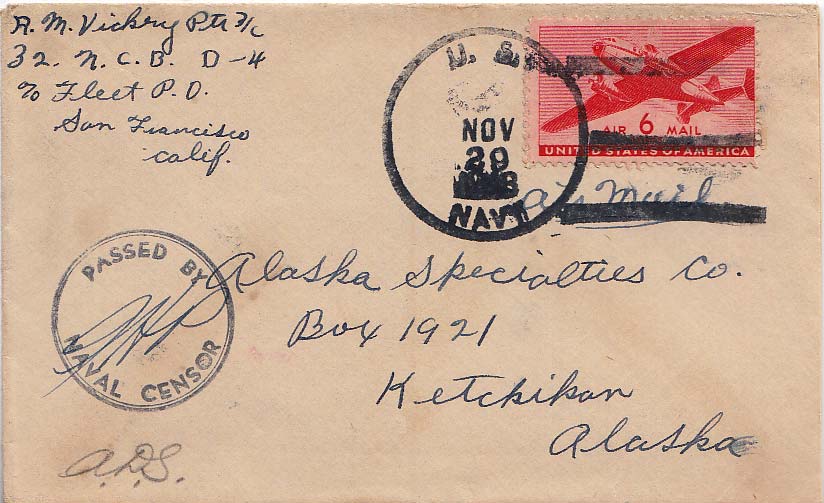 R. M. Vickry Ptr 3/c
32. N. C. B. D-4
c/o Fleet P. O.
San Francisco
Calif.
U. S.
NOV
20
NAVY
AIR 6 MAIL
UNITED STATES OF AMERICA
Air Mail
PASSED BY
NAVAL CENSOR
Alaska Specialties Co.
Box 1921
Ketchikan
Alaska
A.D.S.